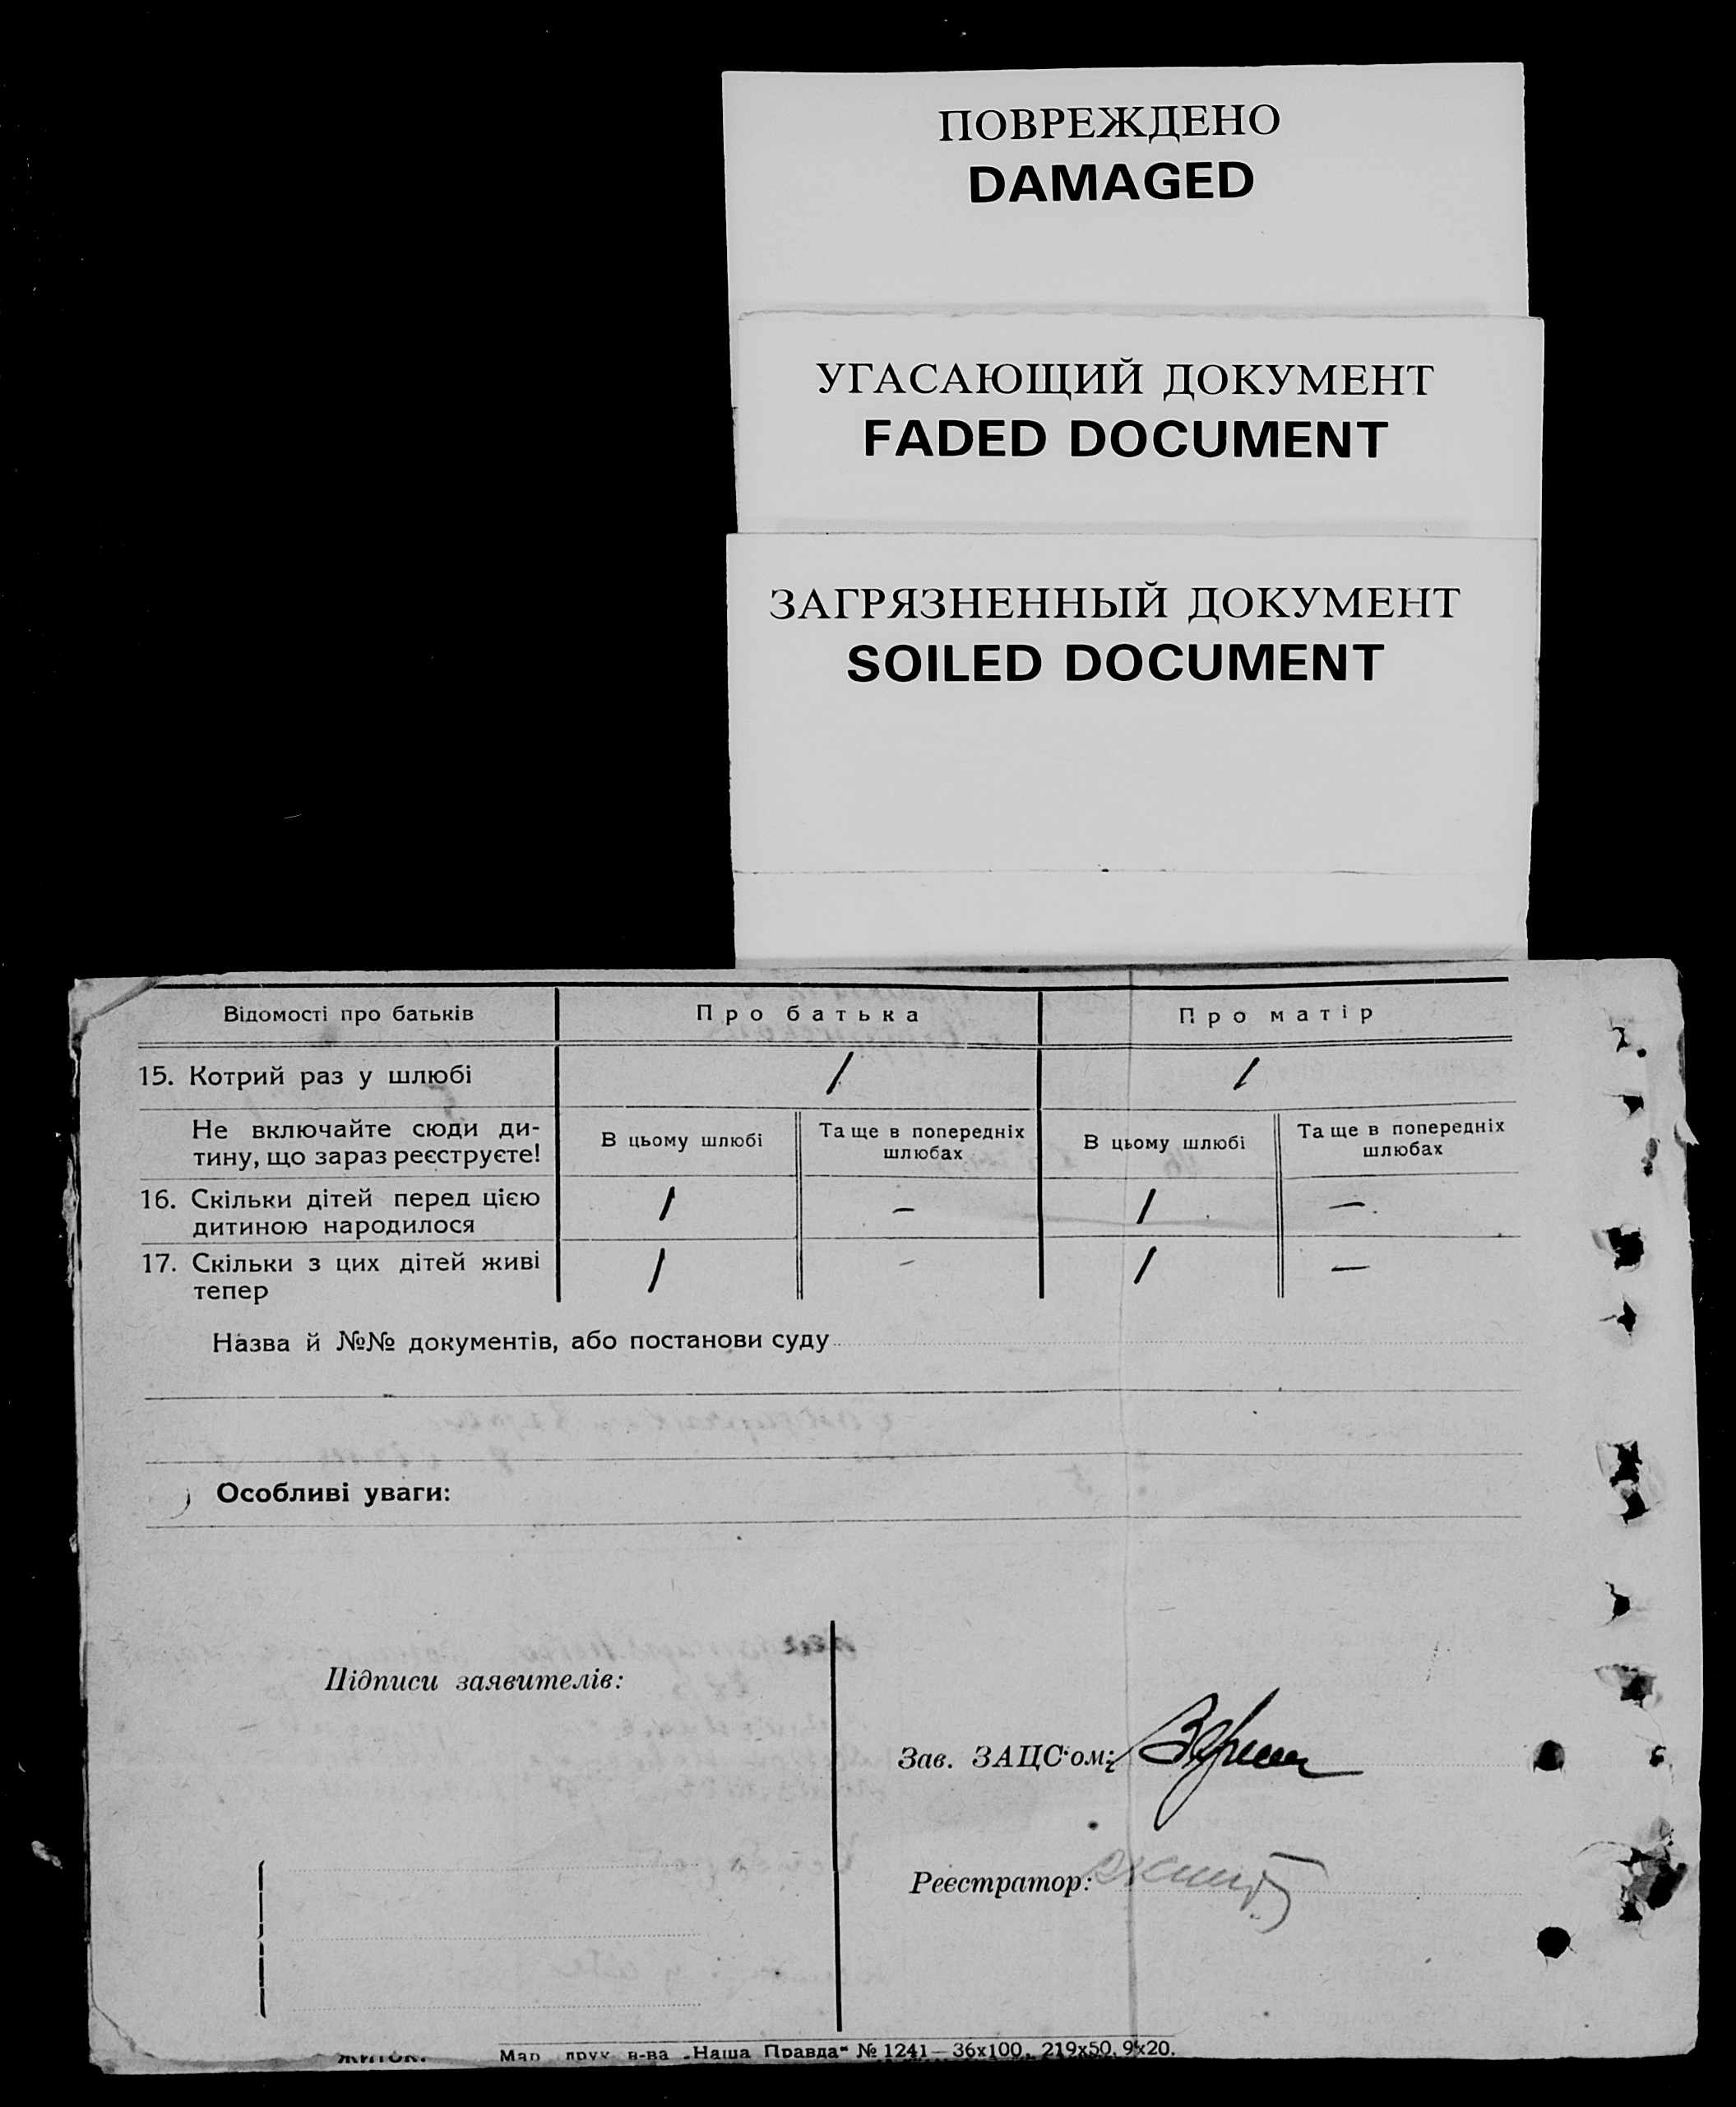 ПОВРЕЖДЕНО
DAMAGED
УГАСАЮЩИЙ ДОКУМЕНТ
FADED DOCUMENT
ЗАГРЯЗНЕННЫЙ ДОКУМЕНТ
SOILED DOCUMENT
Відомості про батьків Про батька Про матір
15. Котрий раз у шлюбі / /
Не включайте сюди ди-
тину, що зараз реєструєте!
В цьому шлюбі
Та ще в попередніх
шлюбах
В цьому шлюбі
Та ще в попередніх
шлюбах
16. Скільки дітей перед цією
дитиною народилося
/ – / –
17. Скільки з цих дітей живі
тепер
/ – / –
Назва й №№ документів, або постанови суду
Особливі уваги:
Підписи заявителів:
Зав. ЗАЦС'ом:
Реєстратор:
Мар. друк. в-ва „Наша Правда“ № 1241—36х100, 219х50, 9х20.